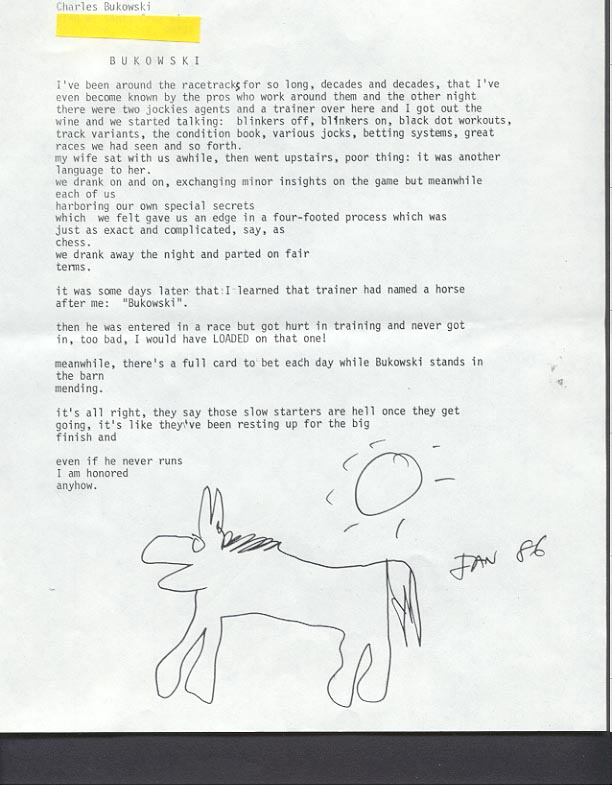 Charles Bukowski
B U K O W S K I
I've been around the racetracks for so long, decades and decades, that I've
even become known by the pros who work around them and the other night
there were two jockies agents and a trainer over here and I got out the
wine and we started talking: blinkers off, blinkers on, black dot workouts,
track variants, the condition book, various jocks, betting systems, great
races we had seen and so forth.
my wife sat with us awhile, then went upstairs, poor thing: it was another
language to her.
we drank on and on, exchanging minor insights on the game but meanwhile
each of us
harboring our own special secrets
which we felt gave us an edge in a four-footed process which was
just as exact and complicated, say, as
chess.
we drank away the night and parted on fair
terms.
it was some days later that I learned that trainer had named a horse
after me: "Bukowski".
then he was entered in a race but got hurt in training and never got
in, too bad, I would have LOADED on that one!
meanwhile, there's a full card to bet each day while Bukowski stands in
the barn
mending.
it's all right, they say those slow starters are hell once they get
going, it's like they've been resting up for the big
finish and
even if he never runs
I am honored
anyhow.
JAN 86